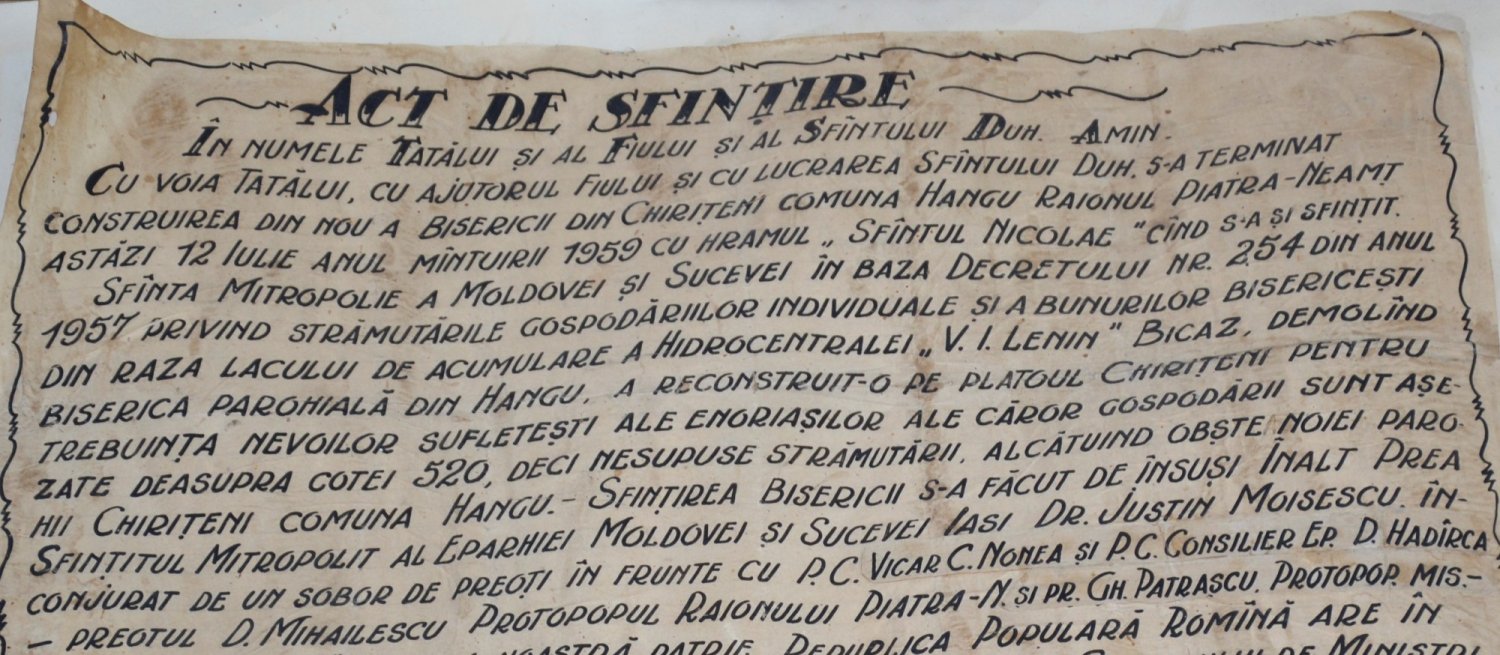 ACT DE SFINȚIRE
ÎN NUMELE TATĂLUI ȘI AL FIULUI ȘI AL SFÎNTULUI DUH. AMIN.
CU VOIA TATĂLUI, CU AJUTORUL FIULUI ȘI CU LUCRAREA SFÎNTULUI DUH, S-A TERMINAT
CONSTRUIREA DIN NOU A BISERICII DIN CHIRIȚENI COMUNA HANGU RAIONUL PIATRA-NEAMȚ
ASTĂZI 12 IULIE ANUL MÎNTUIRII 1959 CU HRAMUL „SFÎNTUL NICOLAE" CÎND S-A ȘI SFINȚIT.
SFÎNTA MITROPOLIE A MOLDOVEI ȘI SUCEVEI ÎN BAZA DECRETULUI NR. 254 DIN ANUL
1957 PRIVIND STRĂMUTĂRILE GOSPODĂRIILOR INDIVIDUALE ȘI A BUNURILOR BISERICEȘTI
DIN RAZA LACULUI DE ACUMULARE A HIDROCENTRALEI „V. I. LENIN" BICAZ, DEMOLÎND
BISERICA PAROHIALĂ DIN HANGU, A RECONSTRUIT-O PE PLATOUL CHIRIȚENI PENTRU
TREBUINȚA NEVOILOR SUFLETEȘTI ALE ENORIAȘILOR ALE CĂROR GOSPODĂRII SUNT AȘE-
ZATE DEASUPRA COTEI 520, DECI NESUPUSE STRĂMUTĂRII, ALCĂTUIND OBȘTE NOIEI PARO-
HII CHIRIȚENI COMUNA HANGU.- SFINȚIREA BISERICII S-A FĂCUT DE ÎNSUȘI ÎNALT PREA
SFINȚITUL MITROPOLIT AL EPARHIEI MOLDOVEI ȘI SUCEVEI IASI DR. JUSTIN MOISESCU, ÎN-
CONJURAT DE UN SOBOR DE PREOȚI ÎN FRUNTE CU P.C. VICAR C. NONEA ȘI P.C. CONSILIER EP. D. HADÎRCA
- PREOTUL D. MIHAILESCU PROTOPOPUL RAIONULUI PIATRA-N. ȘI PR. GH. PATRAȘCU, PROTOPOP. MIS.-
NOASTRĂ PATRIE, REPUBLICA POPULARĂ ROMÎNĂ ARE ÎN
DE MINISTRI